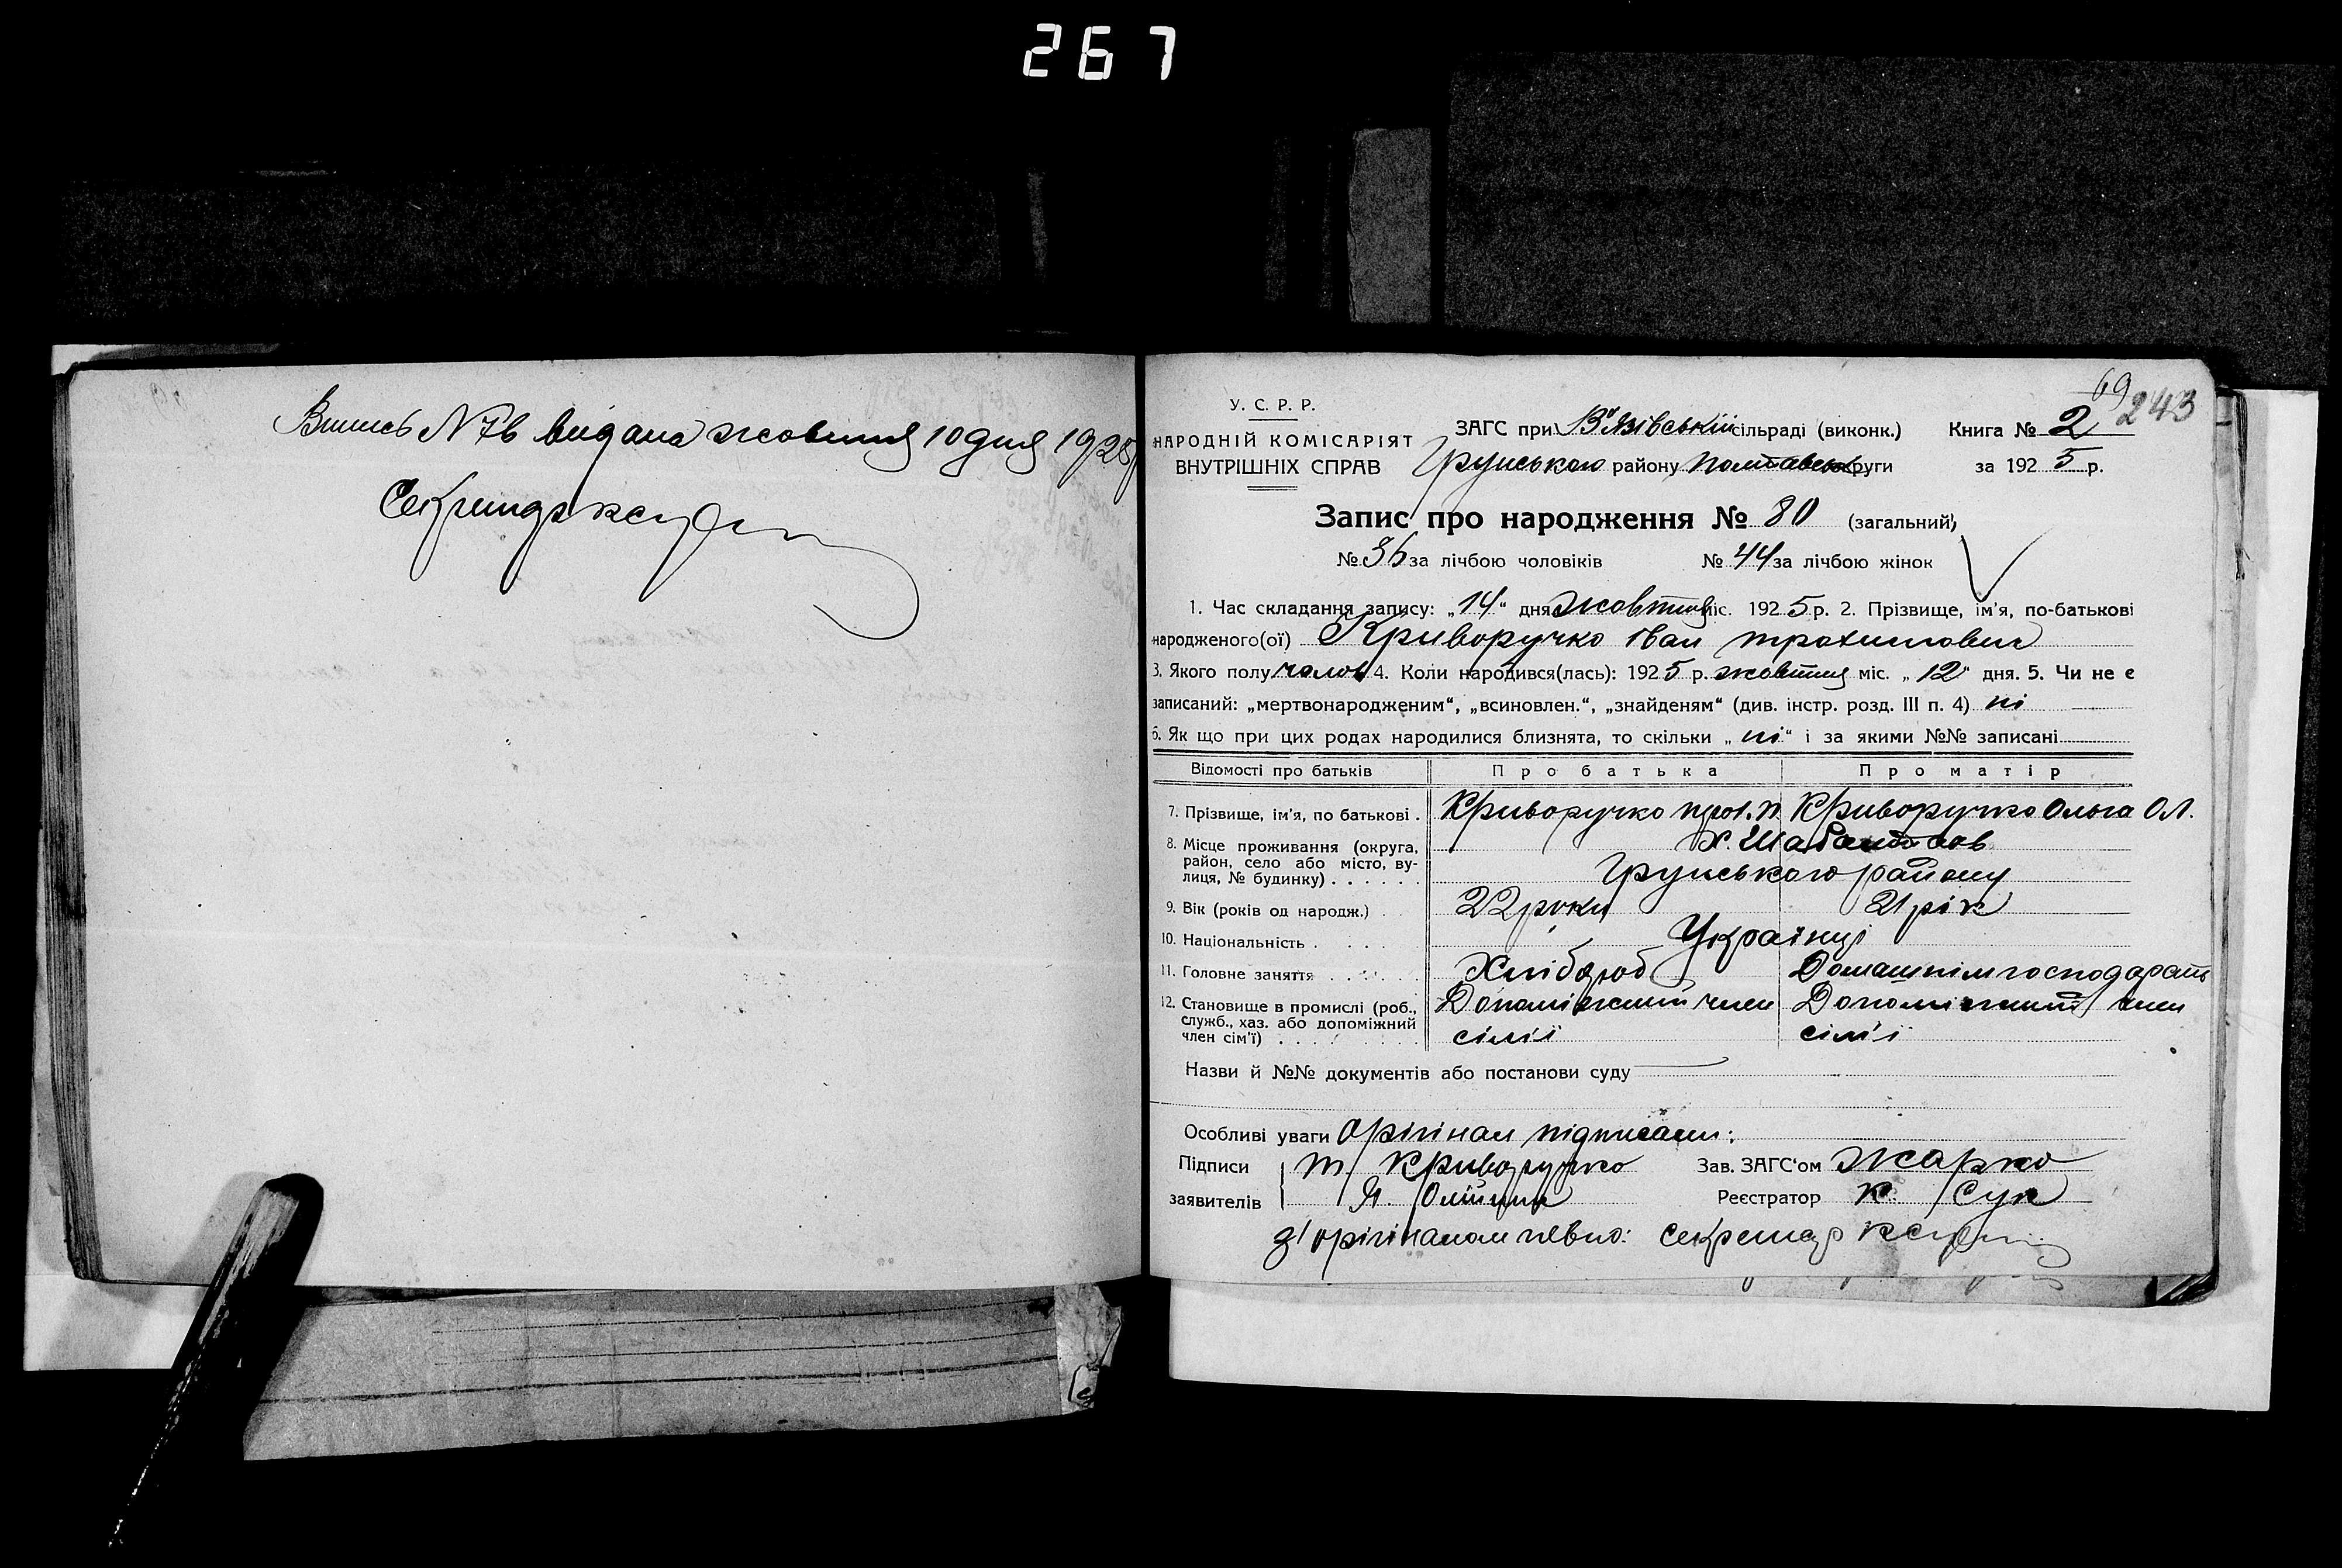 267
Випись N 76 видана жовтня 10 дня 1925р
Секретар
69
243
У. С. Р. Р.
НАРОДНІЙ КОМІСАРІЯТ
ВНУТРІШНІХ СПРАВ
ЗАГС при В'язівській сільраді (виконк.) Книга № 2
Грунського району Полтавськ округи за 1925 р.
Запис про народження № 80 (загальний)
№ 36 за лічбою чоловіків № 44 за лічбою жінок
1. Час складання запису: „14" дня жовтня міс. 1925 р. 2. Прізвище, ім'я, по-батькові
народженого(ої) Криворучко Іван трохимович
3. Якого полу чолов 4. Коли народився(лась): 1925 р. жовтня міс. „12" дня. 5. Чи не є
записаний: „мертвонародженим", „всиновлен.", „знайденям" (див. інстр. розд. III п. 4) ні
6. Як що при цих родах народилися близнята, то скільки „ні" і за якими №№ записані
Відомості про батьків Про батька Про матір
7. Прізвище, ім'я, по батькові . Криворучко П. Криворучко Ольга Ол.
8. Місце проживання (округа, район, село або місто, вулиця, № будинку) . . . . . . Х.
Грунського району
9. Вік (років од народж.) . 22 роки 21 рік
10. Національність . . . . Українці
11. Головне заняття . . . . Хлібороб Домашнім господарать
12. Становище в промислі (роб., Допоміжний член Допоміжний член
служб., хаз. або допоміжний
член сім'ї) . . . . . . сімї сім'ї
Назви й №№ документів або постанови суду
Особливі уваги Орігінал підписали:
Підписи Т Криворучко Зав. ЗАГС'ом Жарко
заявителів Я. Олійник Реєстратор К. Сук
З орігіналом певно: Секретар